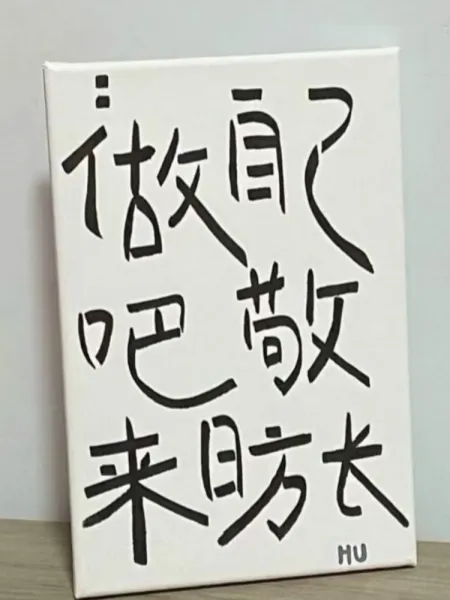 ：做自己
吧敬
来日方长
HU